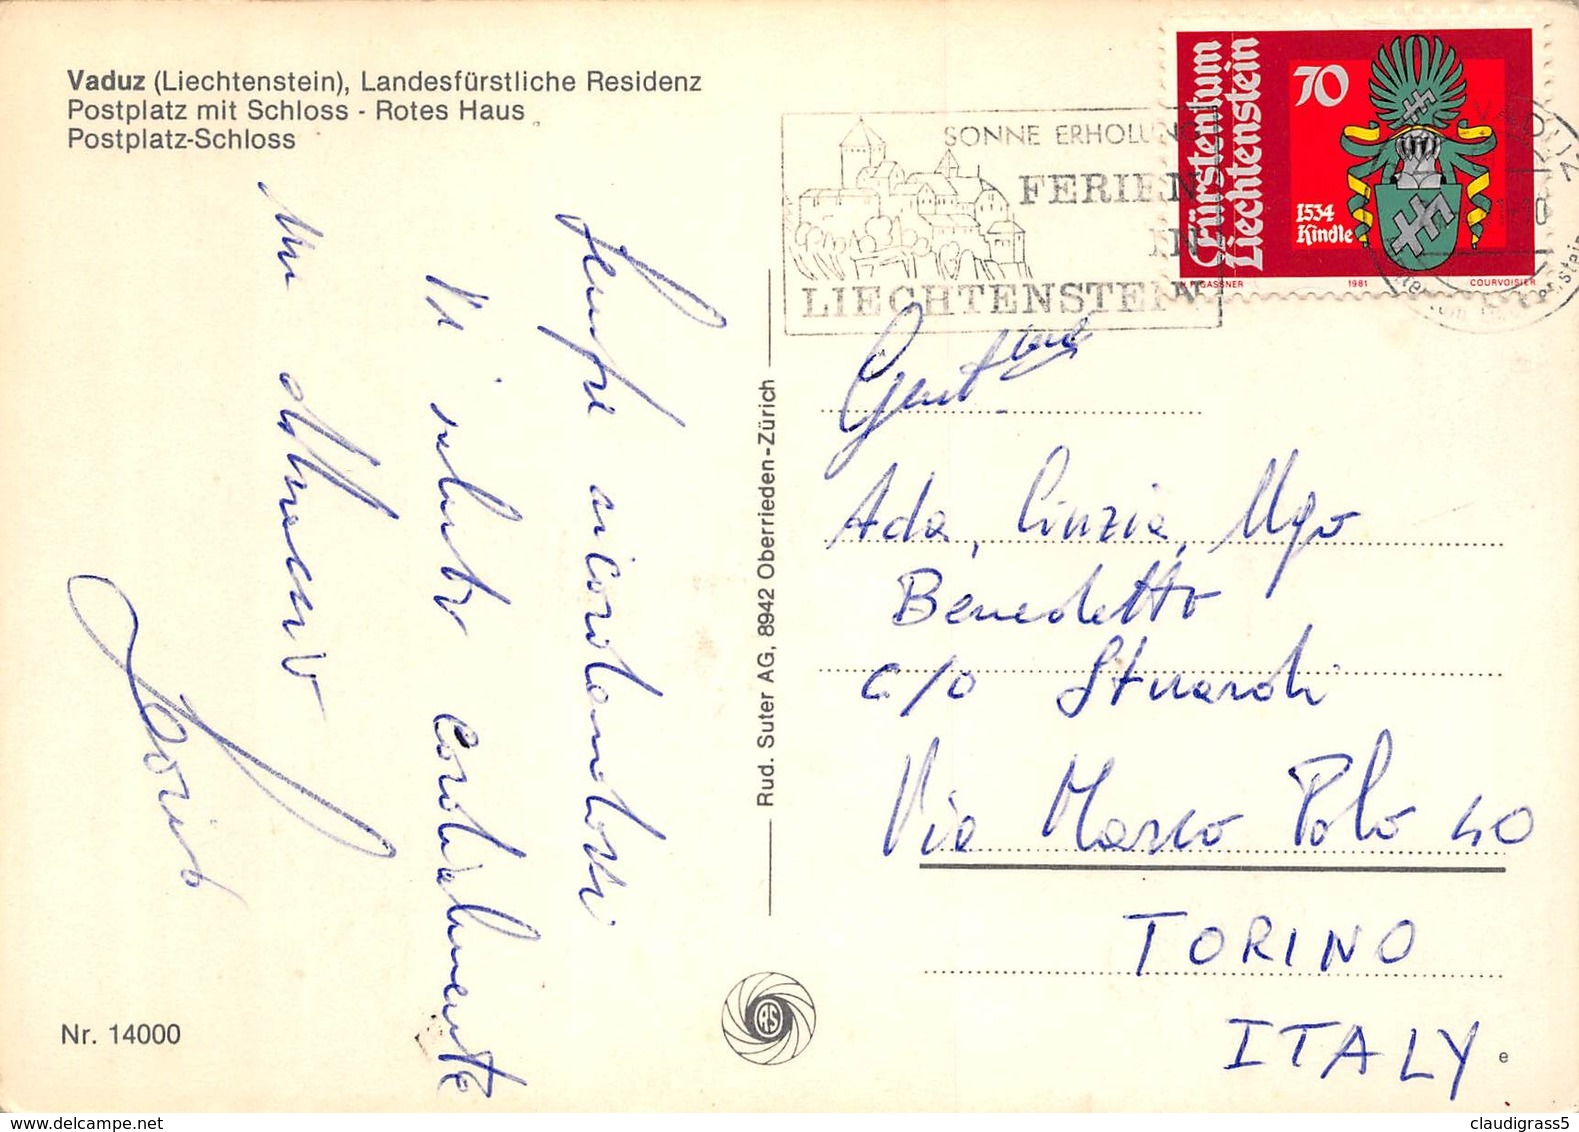 Vaduz (Liechtenstein), Landesfürstliche Residenz
Postplatz mit Schloss - Rotes Haus
Postplatz-Schloss
SONNE ERHOLUNG
FERIEN
IN
LIECHTENSTEIN
Fürstentum
Liechtenstein
70
1534
Kindle
H.P. GASSNER 1981 COURVOISIER
VADUZ
Sempre ricordandovi
Vi saluto cordialmente
Un abbraccio
Rud. Suter AG, 8942 Oberrieden-Zürich
RS
Gent
Ada, Cinzia, Ugo
Benedetto
c/o Stuardi
Via Marco Polo 40
TORINO
ITALY
Nr. 14000
e
www.delcampe.net
claudigrass5